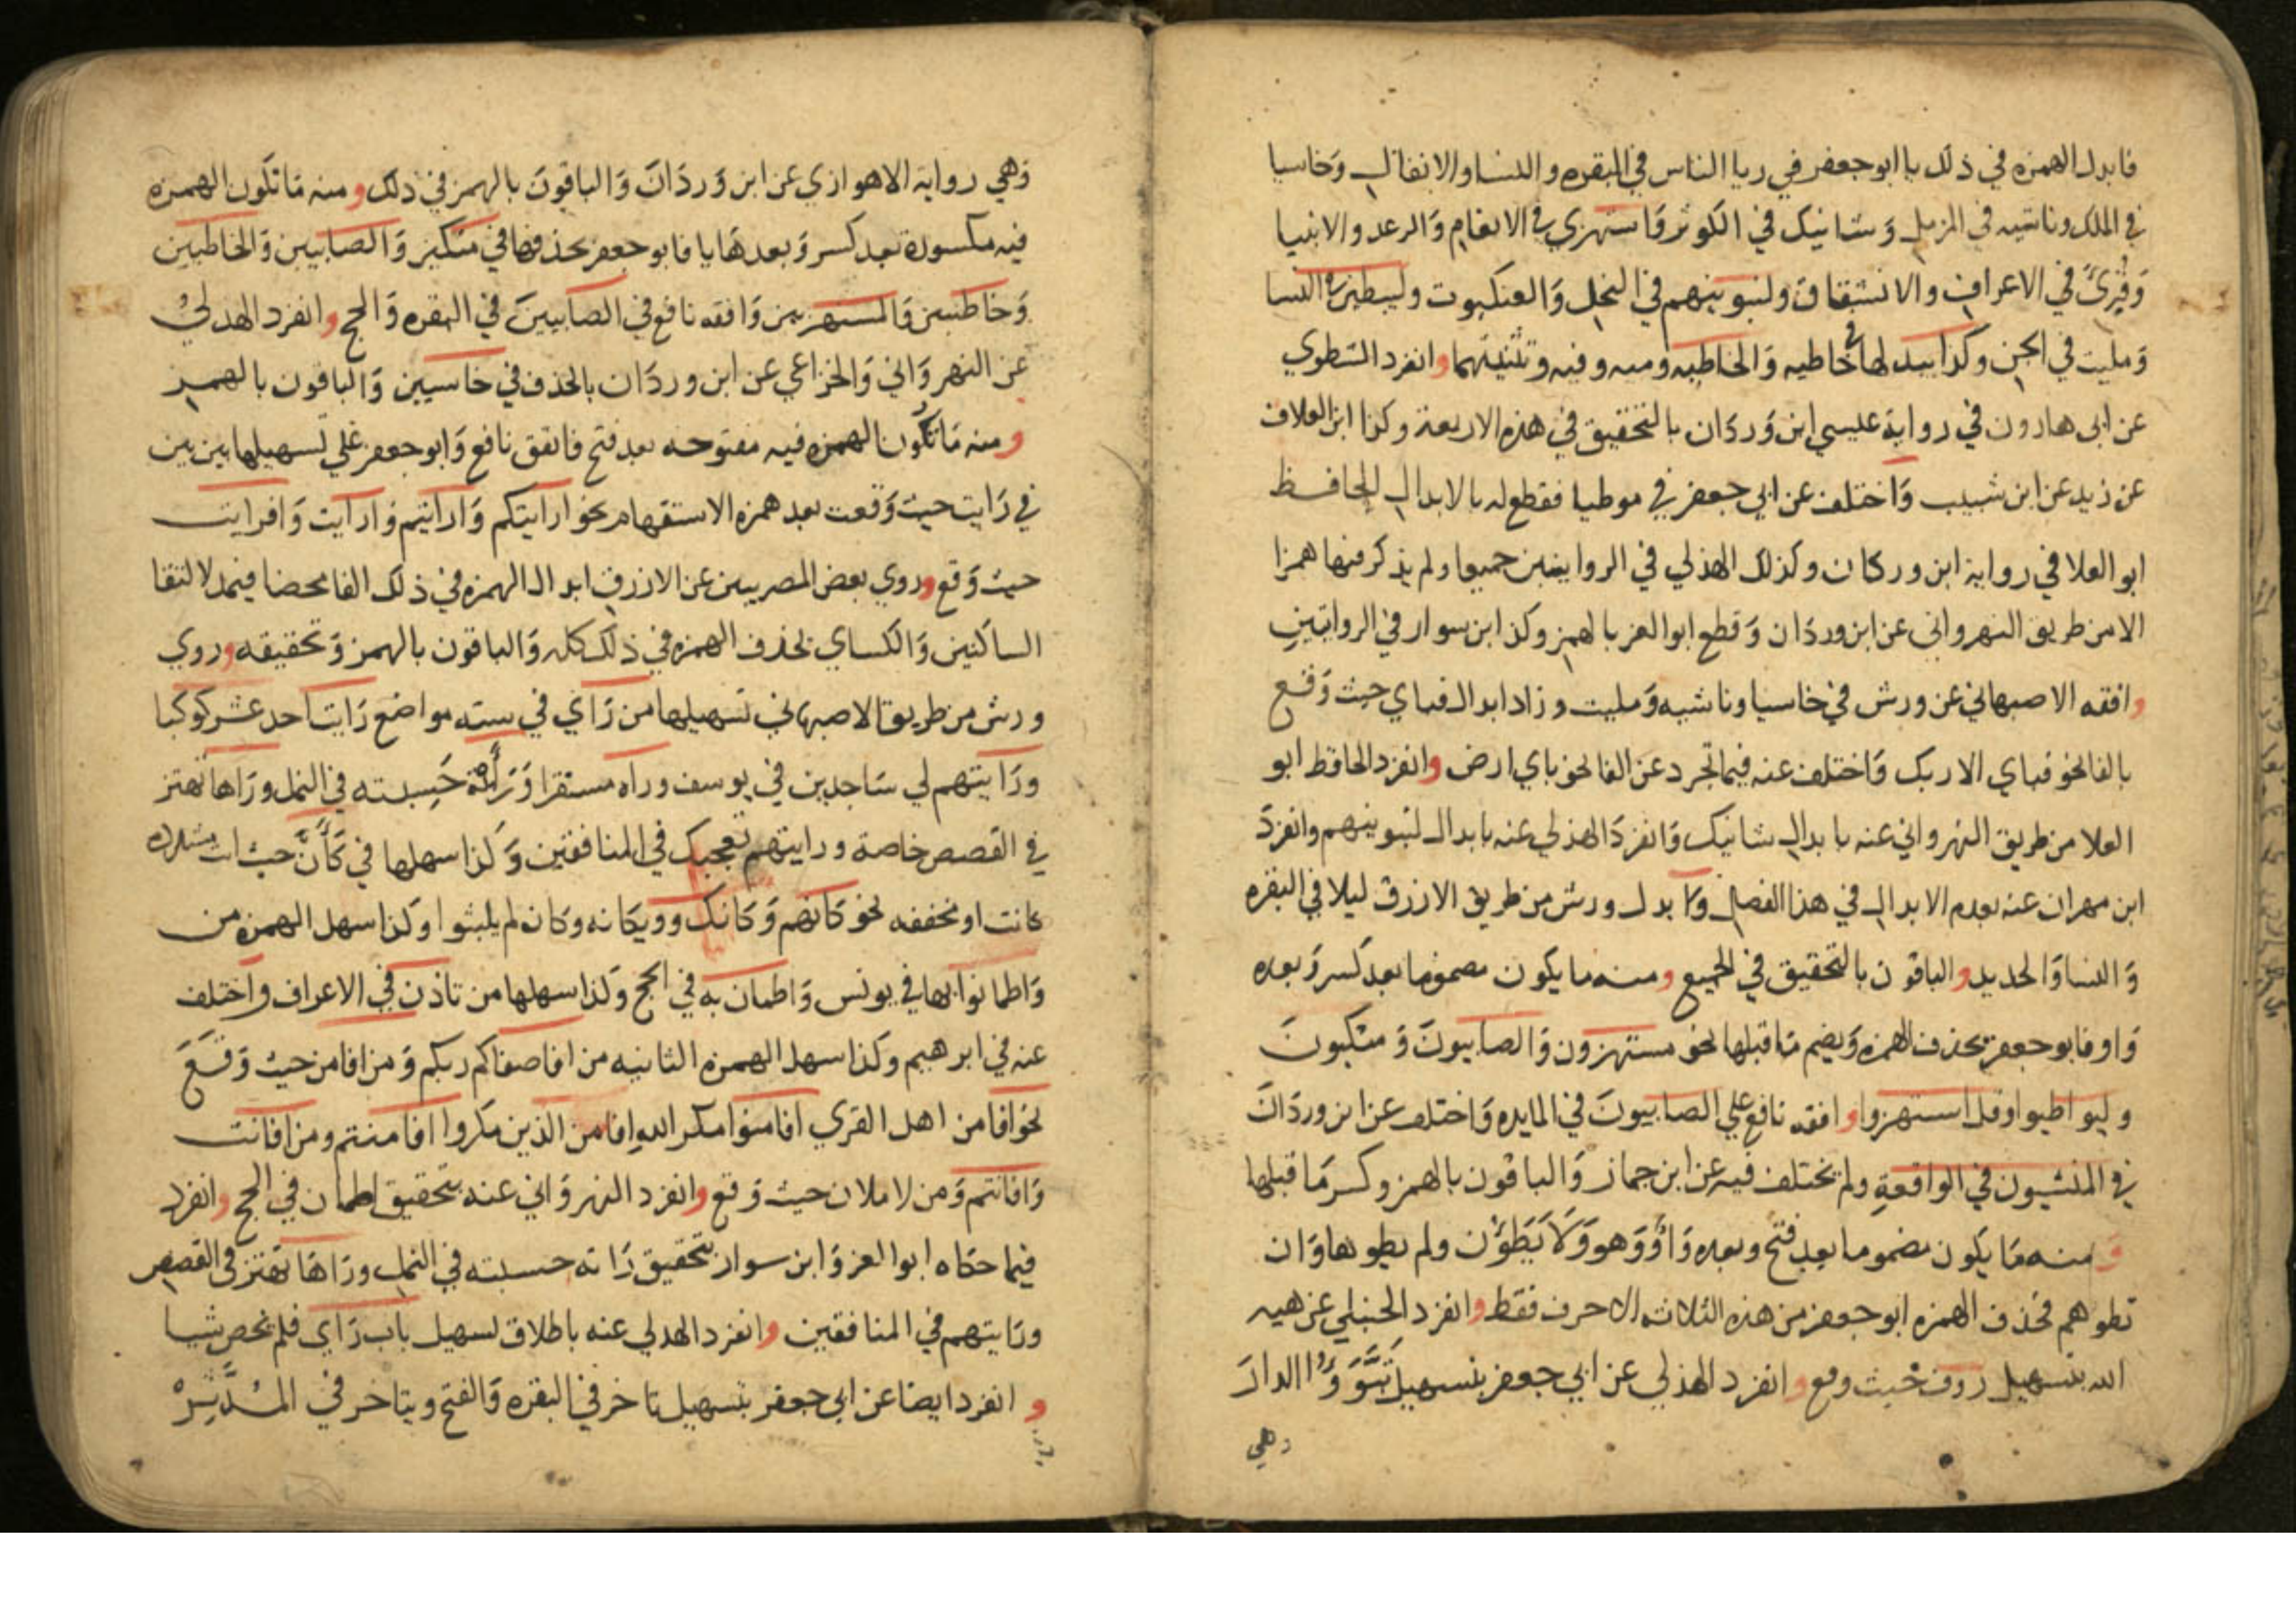 فابدل الهمزه في ذلك يا ابو جعفر في ريا الناس في البقره والنسا والانفال وخاسيا
في الملك وناشيه في المزمل وشانيك في الكوثر واستهزي في الانعام والرعد والانبيا
وقرى في الاعراف والانشقاق ولنبوينهم في النحل والعنكبوت وليبطين في النسا
ومليت في الجن وكذا يبدلها في خاطيه والخاطيه وميه وفيه وتثنيتهما وانفرد الشطوي
عن ابي هارون في رواية عيسي ابن وردان بالتحقيق في هذه الاربعة وكذا ابن العلاف
عن زيد عن ابن شبيب واختلف عن ابي جعفر في موطيا فقطع له بالابدال الحافظ
ابو العلا في رواية ابن وركان وكذلك الهذلي في الروايتين جميعا ولم يذكر فيها همزا
الا من طريق النهرواني عن ابن وردان وقطع ابو العز بالهمز وكذا ابن سوار في الروايتين
وافقه الاصبهاني عن ورش في خاسيا وناشيه ومليت وزاد ابدال فباي حيث وقع
بالفا نحو فباي الا ربك واختلف عنه فيما تجرد عن الفا نحو باي ارض وانفرد الحافظ ابو
العلا من طريق النهرواني عنه بابدال شانيك وانفرد الهذلي عنه بابدال لنبوينهم وانفرد
ابن مهران عنه بعدم الابدال في هذا الفصل وابدل ورش من طريق الازرق ليلا في البقره
والنسا والحديد والباقون بالتحقيق في الجميع ومنه ما يكون مضموما بعد كسر وبعده
واو فابو جعفر بحذف الهمزه ويضم ما قبلها نحو مستهزون والصابيون ومتكيون
وليواطيوا وقل استهزوا وافقه نافع علي الصابيون في المايده واختلف عن ابن وردان
في المنشيون في الواقعة ولم يختلف فيه عن ابن جماز والباقون بالهمز وكسر ما قبلها
ومنه ما يكون مضموما بعد فتح وبعده واو وهو ولا يطؤن ولم يطوها وان
تطوهم فحذف الهمزه ابو جعفر من هذه الثلاثه الاحرف فقط وانفرد الحنبلي عن هبه
الله بتسهيل روف حيث وقع وانفرد الهذلي عن ابي جعفر بتسهيل تبوؤا الدار
وهي
وهي رواية الاهوازي عن ابن وردان والباقون بالهمز في ذلك ومنه ما تكون الهمزه
فيه مكسورة بعد كسر وبعدها يا فابو جعفر بحذفها في متكين والصابيين والخاطيين
وخاطيين والمستهزيين وافقه نافع في الصابيين في البقره والحج وانفرد الهذلي
عن النهرواني والخزاعي عن ابن وردان بالحذف في خاسيين والباقون بالهمز
ومنه ما تكون الهمزه فيه مفتوحه بعد فتح فاتفق نافع وابو جعفر علي تسهيلها بين بين
في رايت حيث وقعت بعد همزه الاستفهام نحو ارايتكم وارايتم وارايت وافرايت
حيث وقع وروي بعض المصريين عن الازرق ابدال الهمزه في ذلك الفا محضا فيمد لالتقا
الساكنين والكساي بحذف الهمزه في ذلك كله والباقون بالهمز وتحقيقه وروي
ورش من طريق الاصبهاني تسهيلها من راي في سته مواضع رايت احد عشر كوكبا
ورايتهم لي ساجدين في يوسف وراه مستقرا ورأته حسبته في النمل وراها تهتز
في القصص خاصة ورايتهم تعجبك في المنافقين وكذا سهلها في كأن حيث ات مشدده
كانت او مخففه نحو كانهم وكانك وويكانه وكان لم يلبثوا وكذا سهل الهمزه من
واطمانوا بها في يونس واطمان به في الحج وكذا سهلها من تاذن في الاعراف واختلف
عنه في ابرهيم وكذا سهل الهمزه الثانيه من افاصفاكم ربكم ومن افامن حيث وقع
نحو افامن اهل القري افامنوا مكر الله افامن الذين مكروا افامنتم ومن افانت
وافانتم ومن لاملان حيث وقع وانفرد النهرواني عنه بتحقيق اطمان في الحج وانفرد
فيما حكاه ابو العز وابن سوار بتحقيق راته حسبته في النمل وراها تهتز في القصص
ورايتهم في المنافقين وانفرد الهدلي عنه باطلاق تسهيل باب راي فلم يخص شيا
وانفرد ايضا عن ابي جعفر بتسهيل تاخر في البقره والفتح ويتاخر في المدثر